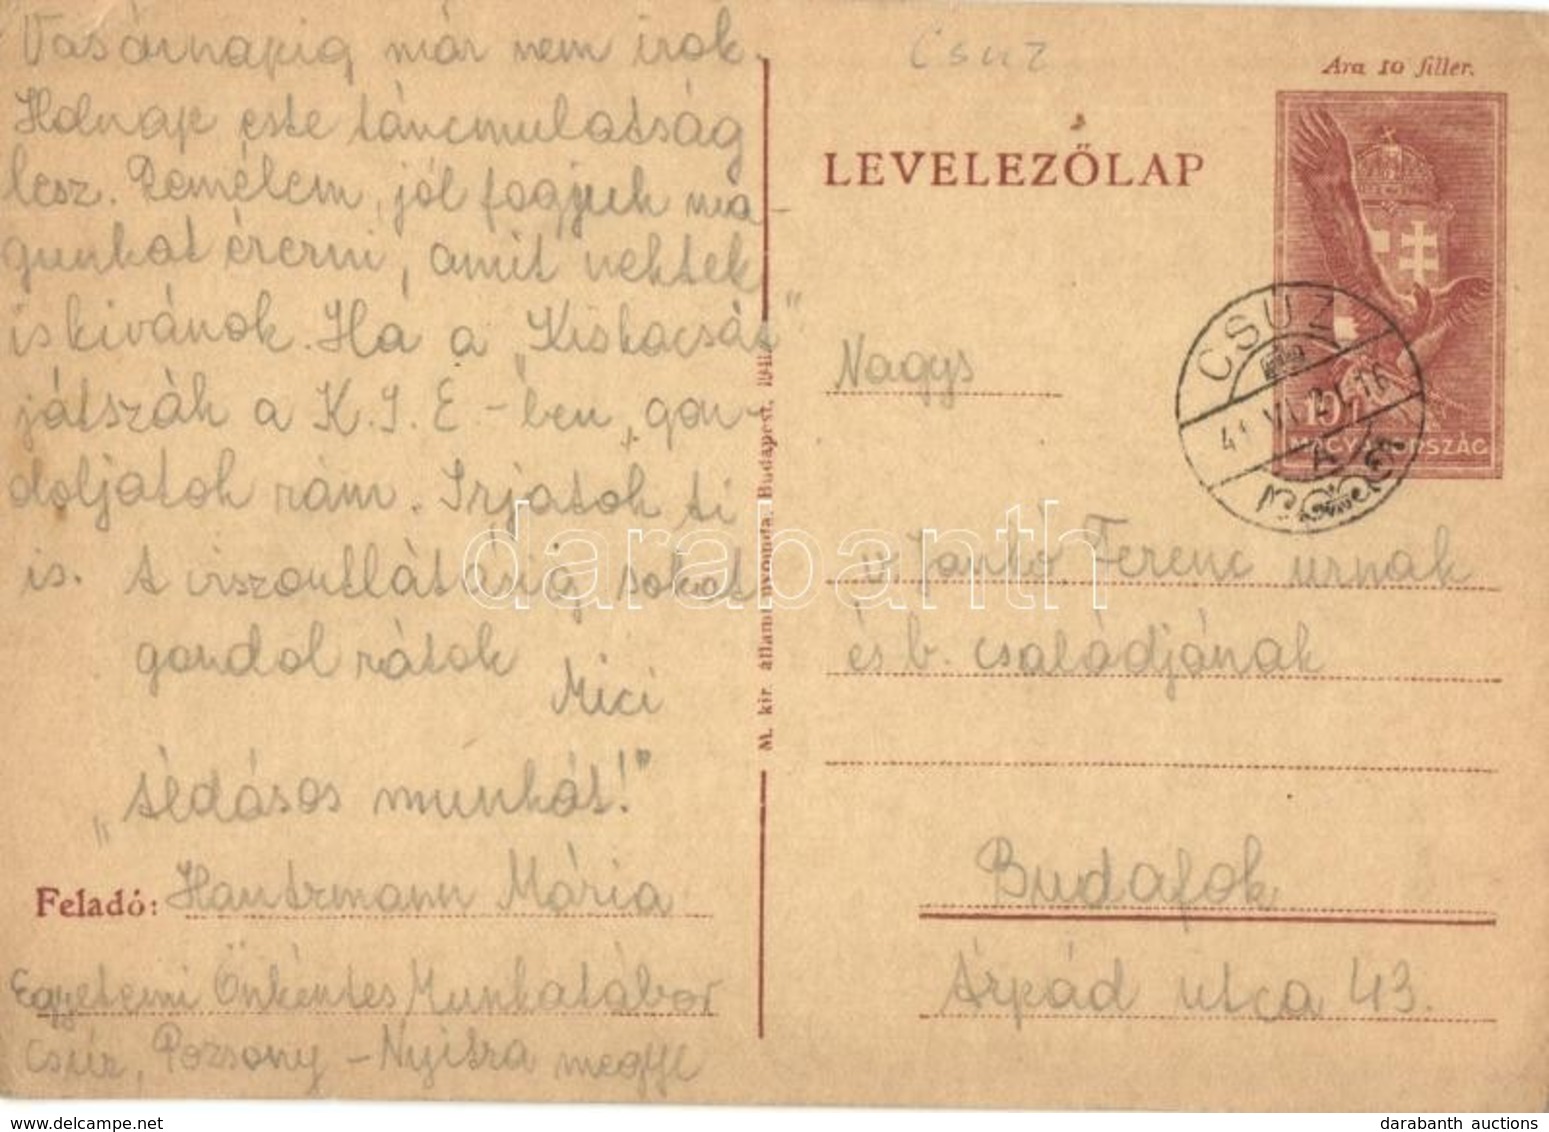 Vasárnapig már nem irok.
Holnap este táncmulatság
lesz. Remélem, jól fogjuk ma-
gunkat érezni, amit nektek
is kivánok. Ha a „Kiskacsát"
játszák a K. I. E-ben, gon-
doljatok rám. Irjatok ti
is. A viszontlátásig sokat
gondol rátok
Mici
„Áldásos munkát!"
Feladó: Hantzmann Mária
Egyetemi Önkéntes Munkatábor
Csúz, Pozsony-Nyitra megye
M. kir. állami nyomda, Budapest,
Csuz
Ára 10 fillér.
LEVELEZŐLAP
10f
MAGYARORSZÁG
CSUZ
41 VI
A
Nagys
v. Jankó Ferenc urnak
és b. családjának
Budafok
Árpád utca 43.
darabanth
darabanth auctions